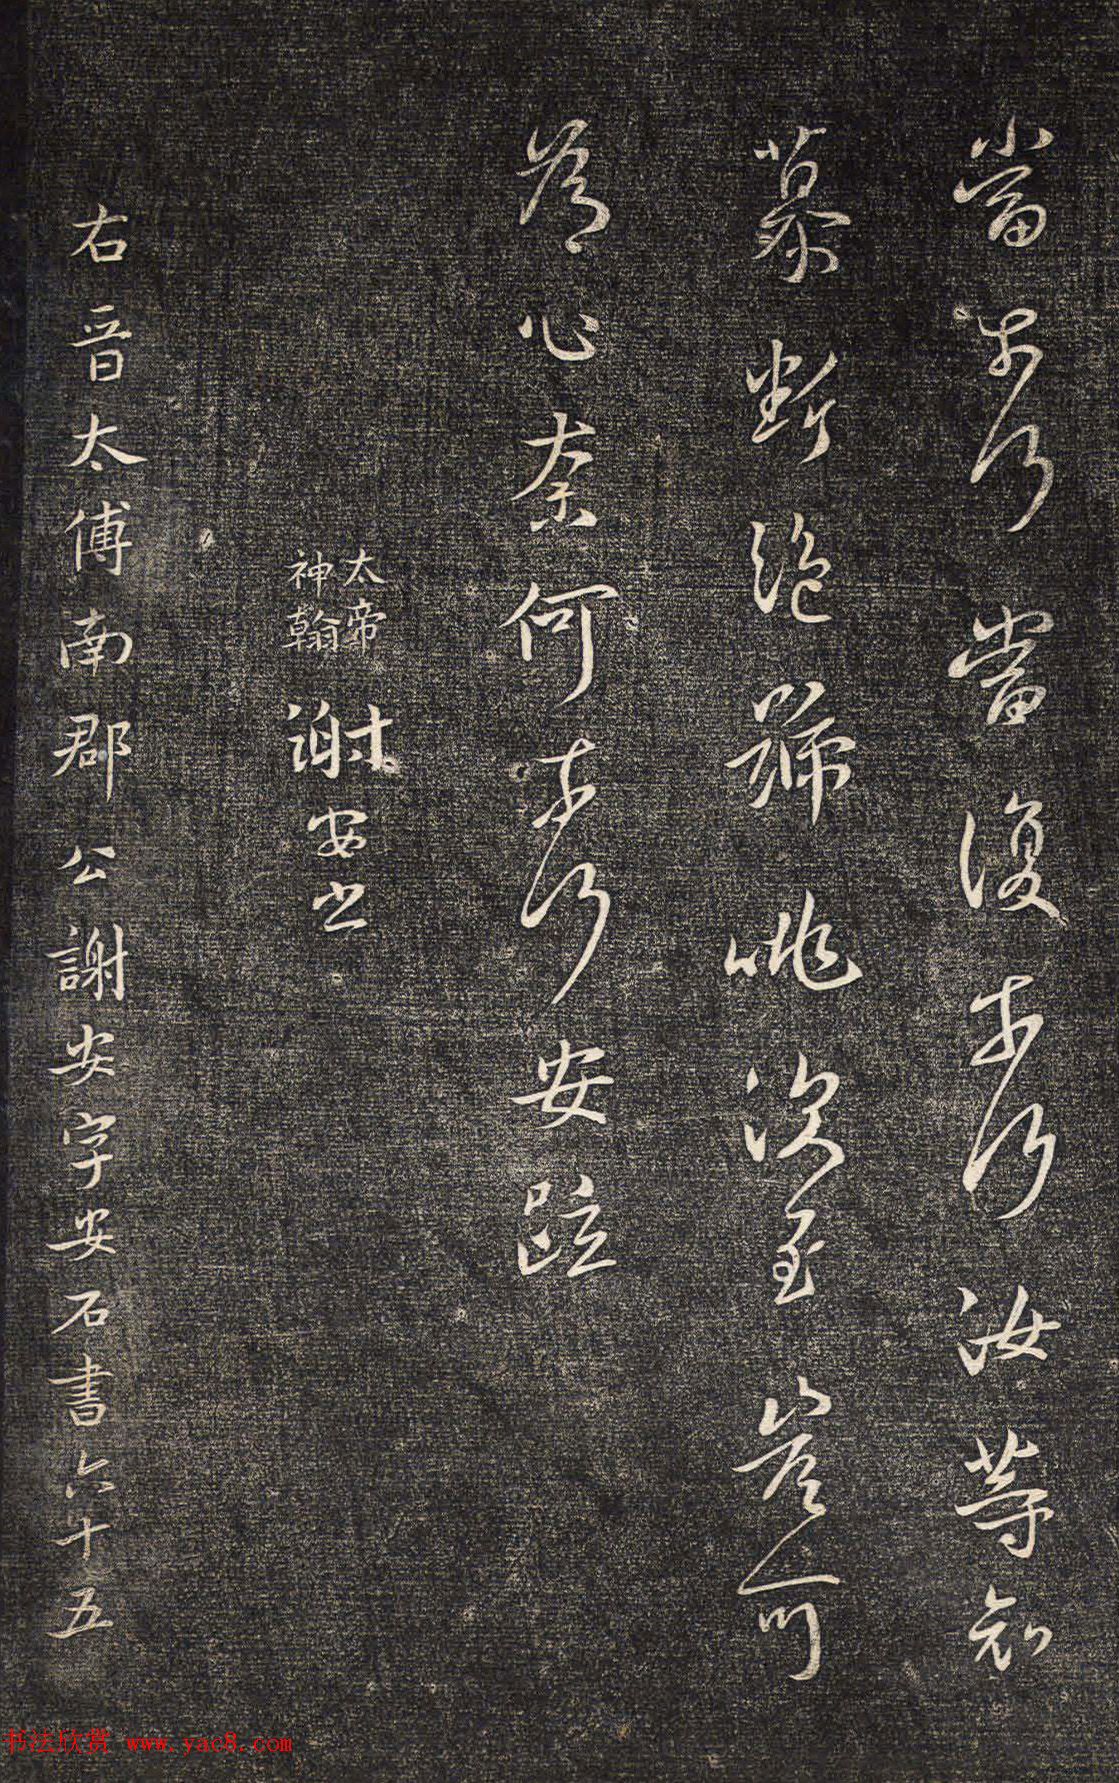 當奈何當復奈何汝等哀
慕斷絕號咷深至豈可
為心奈何奈何安疏
太帝
神翰
謝安書
右晉太傅南郡公謝安字安石書六十五
书法欣赏 www.yac8.com